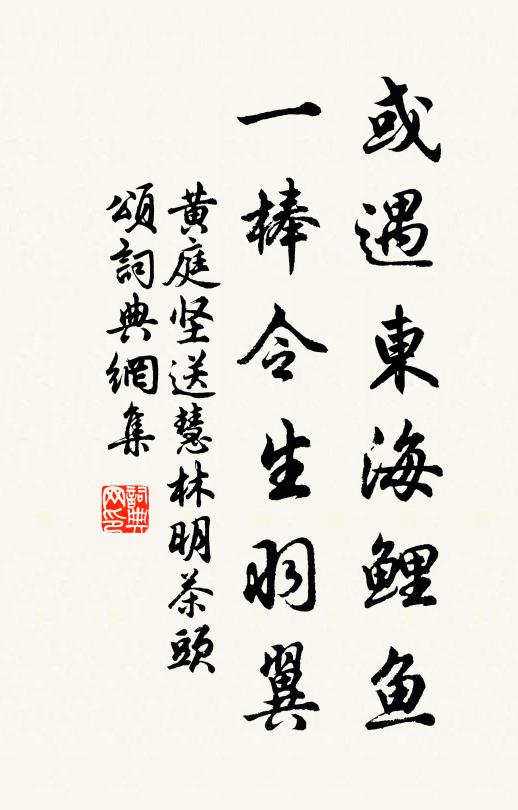 或遇東海鲤鱼
一棒令生羽翼
黄庭坚送慧林明茶頭
頌詞典網集
詞典网印